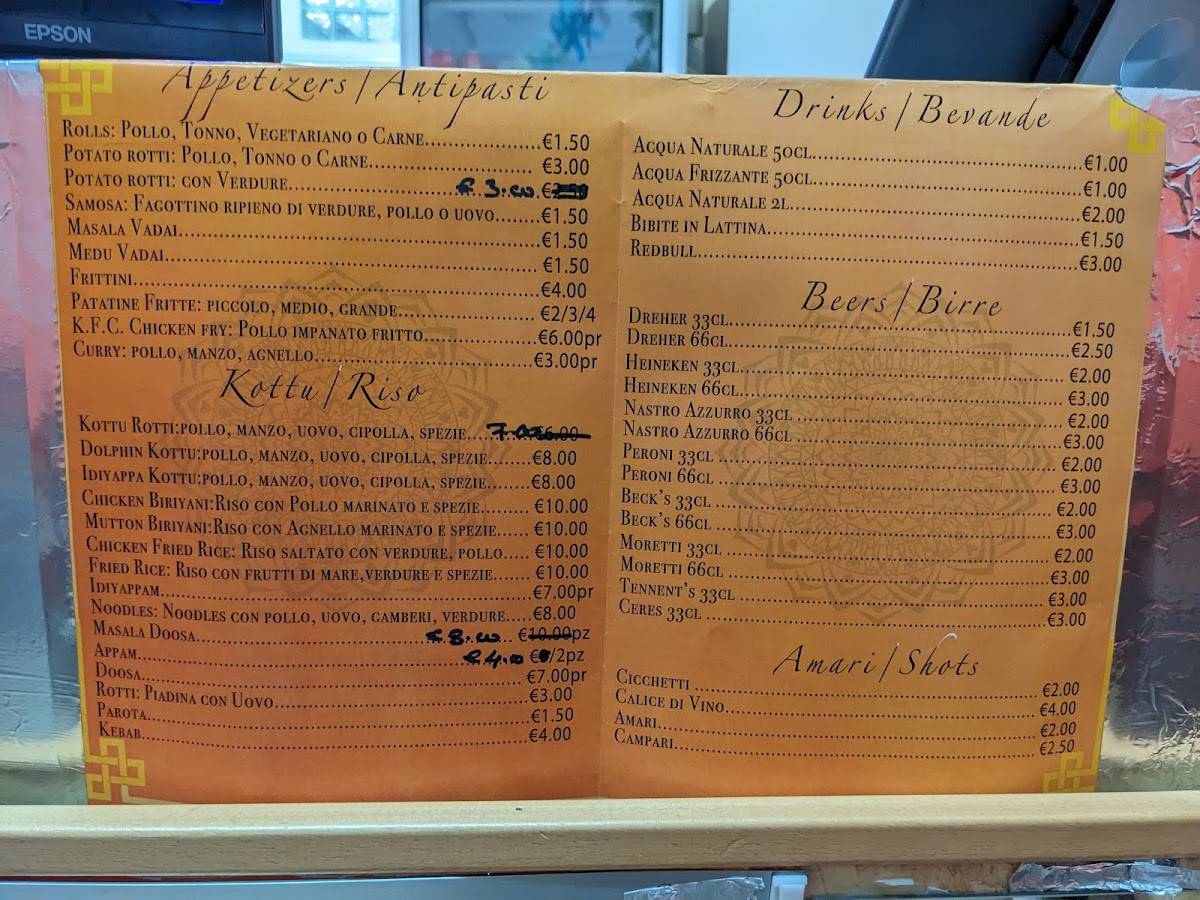 EPSON
Appetizers / Antipasti
Rolls: Pollo, Tonno, Vegetariano o Carne....................€1.50
Potato rotti: Pollo, Tonno o Carne............................€3.00
Potato rotti: con Verdure............................€ 3.00 €2.50
Samosa: Fagottino ripieno di verdure, pollo o uovo.......€1.50
Masala Vadai............................€1.50
Medu Vadai............................€1.50
Frittini............................€4.00
Patatine Fritte: piccolo, medio, grande............................€2/3/4
K.F.C. Chicken fry: Pollo impanato fritto....................€6.00pr
Curry: pollo, manzo, agnello............................€3.00pr
Kottu / Riso
Kottu Rotti:pollo, manzo, uovo, cipolla, spezie.... 7.00 €6.00
Dolphin Kottu:pollo, manzo, uovo, cipolla, spezie.......€8.00
Idiyappa Kottu:pollo, manzo, uovo, cipolla, spezie.......€8.00
Chicken Biriyani:Riso con Pollo marinato e spezie........ €10.00
Mutton Biriyani:Riso con Agnello marinato e spezie...... €10.00
Chicken Fried Rice: Riso saltato con verdure, pollo..... €10.00
Fried Rice: Riso con frutti di mare,verdure e spezie....... €10.00
Idiyappam............................€7.00pr
Noodles: Noodles con pollo, uovo, gamberi, verdure.....€8.00
Masala Doosa............................€ 8.00 .. €10.00pz
Appam............................€ 4.00 €/2pz
Doosa............................€7.00pr
Rotti: Piadina con Uovo............................€3.00
Parota............................€1.50
Kebab............................€4.00
Drinks / Bevande
Acqua Naturale 50cl............................€1.00
Acqua Frizzante 50cl............................€1.00
Acqua Naturale 2l............................€2.00
Bibite in Lattina............................€1.50
Redbull............................€3.00
Beers / Birre
Dreher 33cl............................€1.50
Dreher 66cl............................€2.50
Heineken 33cl............................€2.00
Heineken 66cl............................€3.00
Nastro Azzurro 33cl............................€2.00
Nastro Azzurro 66cl............................€3.00
Peroni 33cl............................€2.00
Peroni 66cl............................€3.00
Beck's 33cl............................€2.00
Beck's 66cl............................€3.00
Moretti 33cl............................€2.00
Moretti 66cl............................€3.00
Tennent's 33cl............................€3.00
Ceres 33cl............................€3.00
Amari / Shots
Cicchetti............................€2.00
Calice di Vino............................€4.00
Amari............................€2.00
Campari............................€2.50